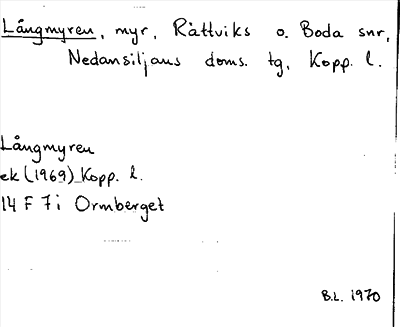 Långmyren, myr, Rättviks o. Boda snr,
Nedansiljans doms. tg, Kopp. l.
Långmyren
ek (1969) Kopp. l.
14 F 7i Ormberget
B.L. 1970